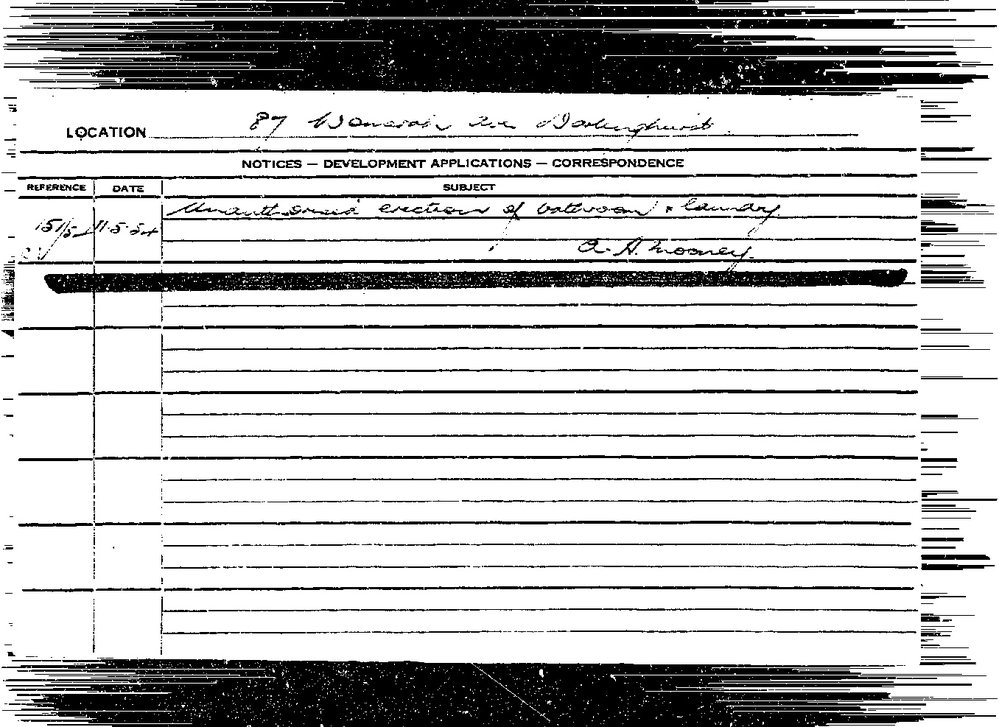 LOCATION 87 Womerah Ave Darlinghurst
NOTICES — DEVELOPMENT APPLICATIONS — CORRESPONDENCE
REFERENCE DATE SUBJECT
151/54 11.5.54 Unauthorised erection of bathroom & laundry
A. H. Mooney.